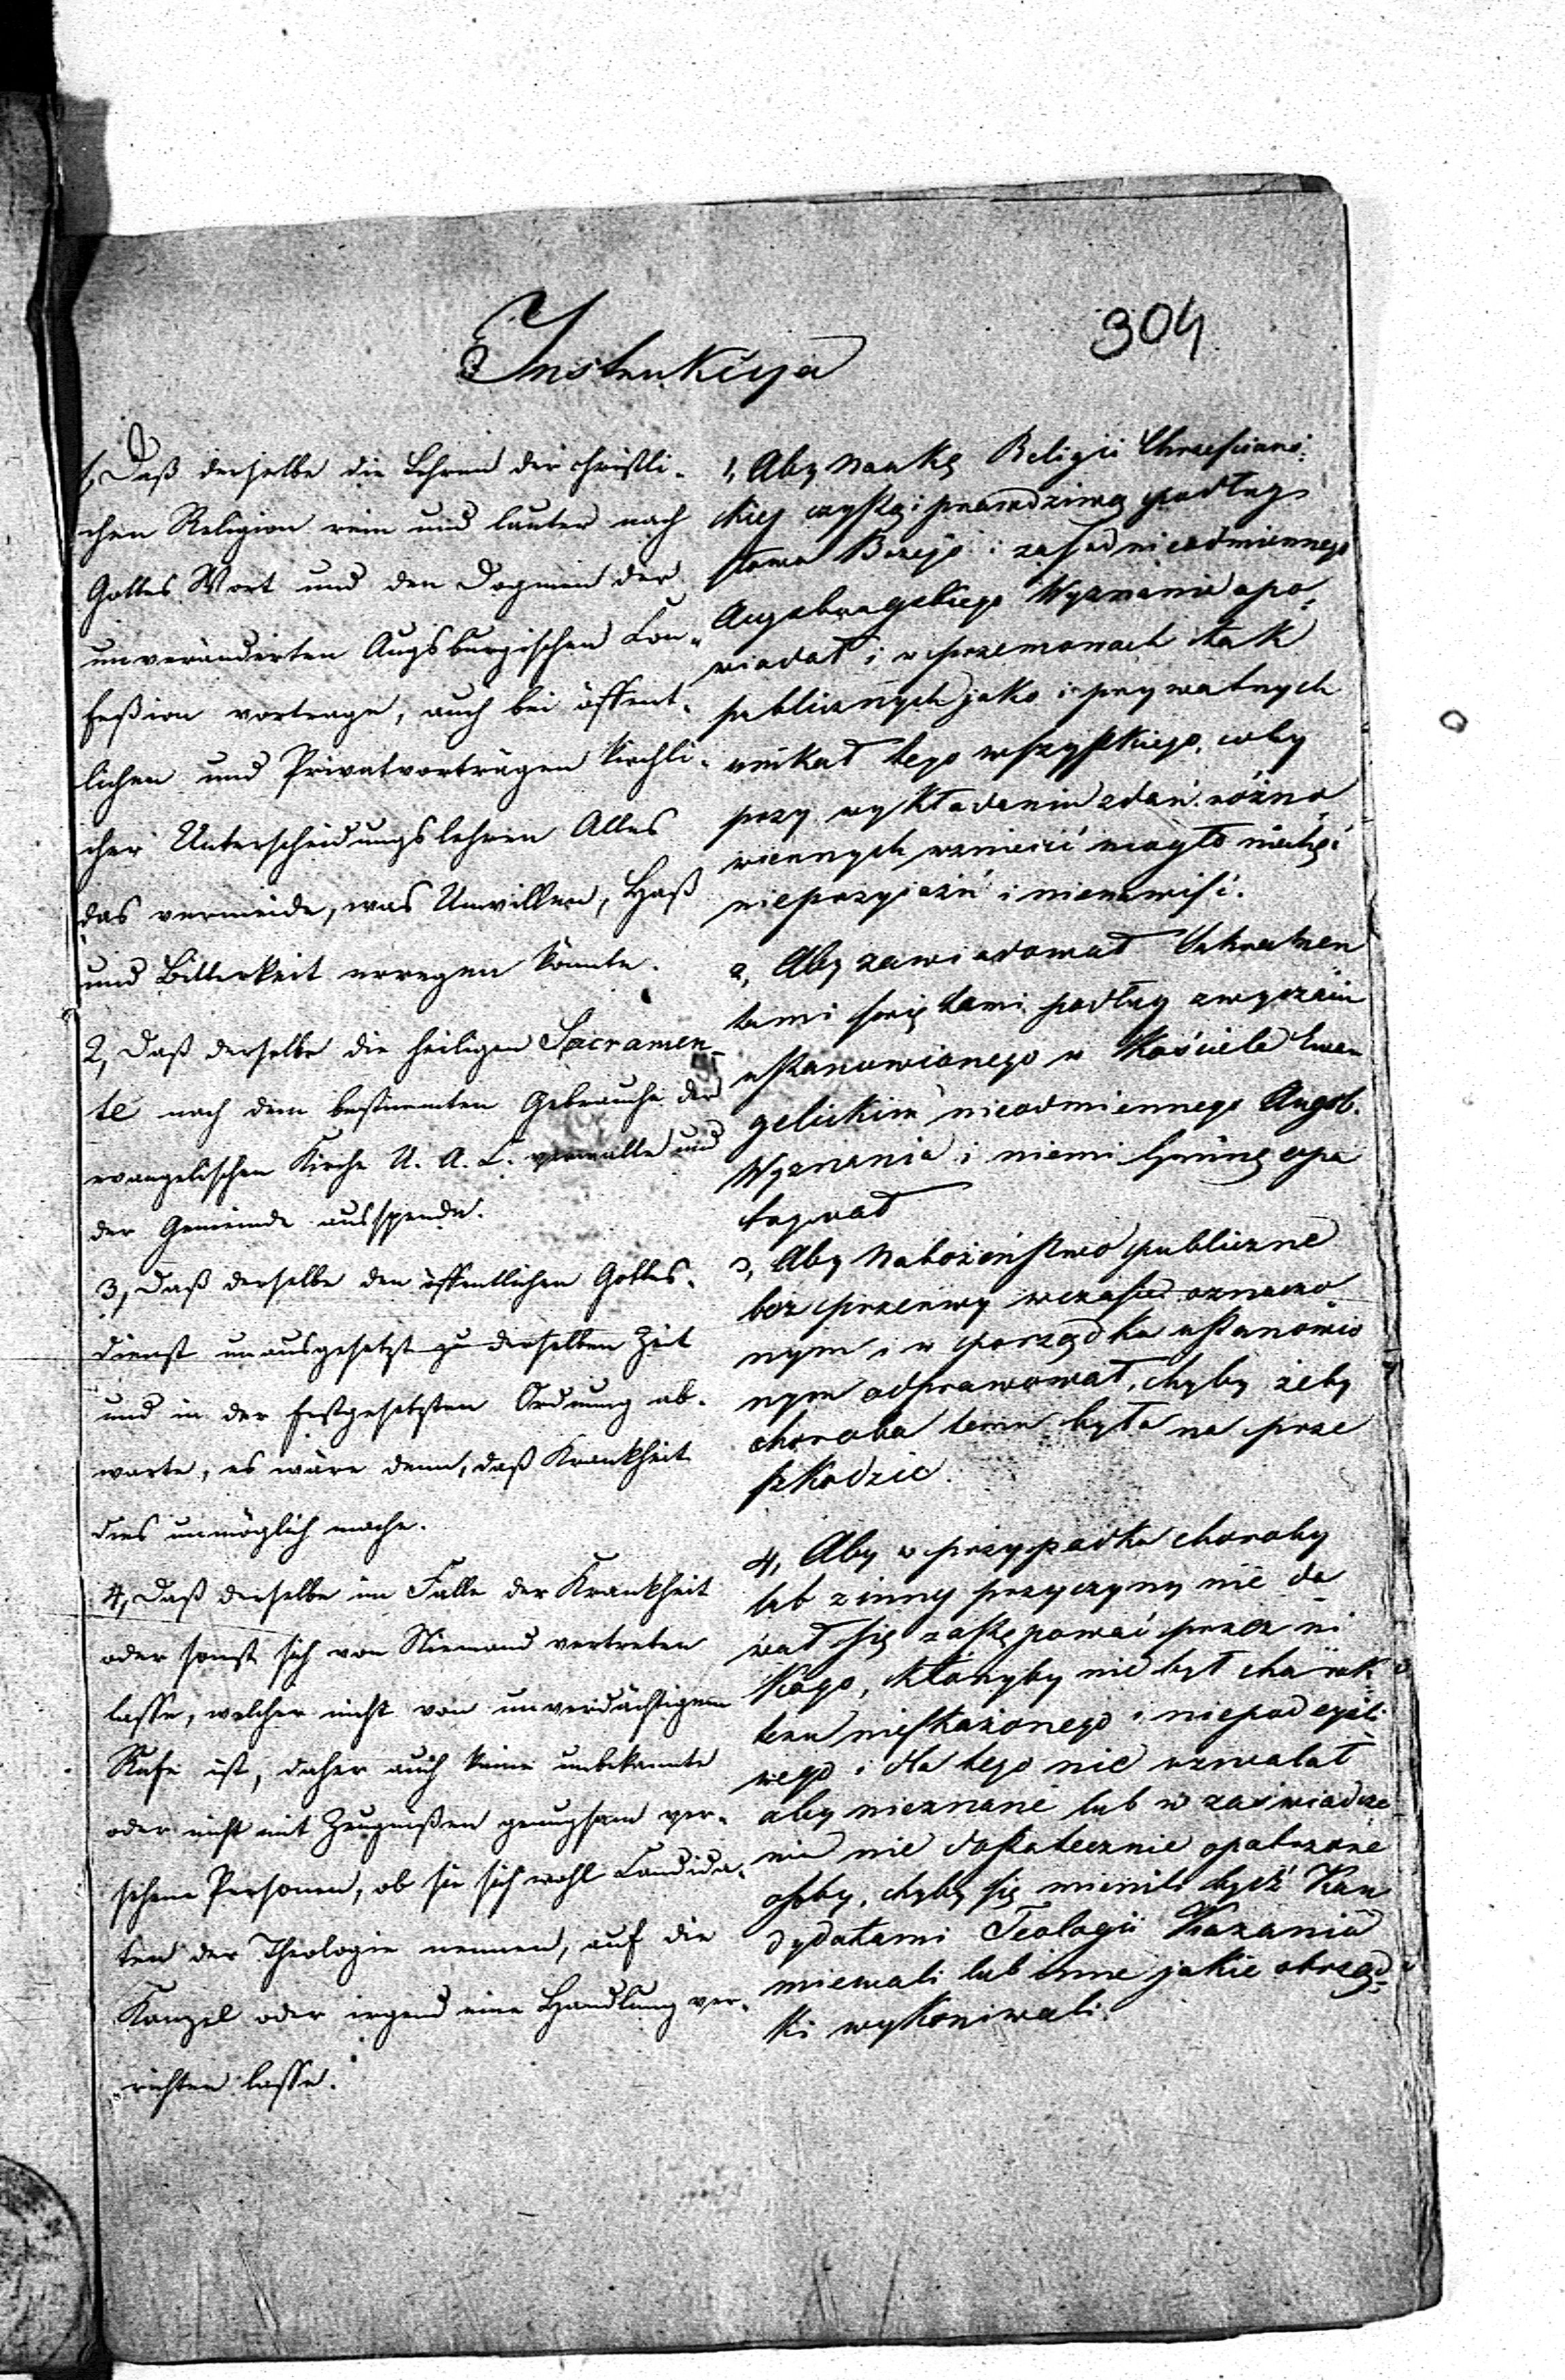 304
Instrukcija
1, Daß derselbe die Lehren der christli-
chen Religion rein und lauter nach
Gottes Wort und den Dogmen der
unveränderten Augsburgischen Con-
feßion vortrage, auch bei öffent-
lichen und Privatvorträgen kirchli-
cher Unterscheidungslehren Alles
das vermeide, was Unwillen, Haß
und Bitterkeit erregen könnte.
2, Daß derselbe die heiligen Sacramen-
te nach dem bestimmten Gebrauche der
evangelischen Kirche U. A. C. verwalte und
der Gemeinde ausspende.
3, Daß derselbe den öffentlichen Gottes-
dienst unausgesetzt zu derselben Zeit
und in der festgesetzten Ordnung ab-
warte, es wäre denn, daß Krankheit
dies unmöglich mache.
4, Daß derselbe im Falle der Krankheit
oder sonst sich von Niemand vertreten
lasse, welcher nicht von unverdächtigem
Rufe ist, daher auch keine unbekannte
oder nicht mit Zeugnißen genugsam ver-
sehene Personen, ob sie sich wohl Candida-
ten der Theologie nennen, auf die
Kanzel oder irgend eine Handlung ver-
richten lasse.
1, Aby naukę Religii Chrześcians-
kiej czystą i prawdziwą podług
słowa Bożego i zasad nieodmiennego
Augsburgskiego Wyznania opo-
wiadał i w przemowach tak
publicznych jako i prywatnych
unikał tego wszystkiego, coby
przy wykładaniu zdań różno
wiennych wzniecić mogło niechęć
nieprzyjaźń i nienawiść.
2, Aby zawiadował Sakramen
tami świętami podług zwyczaiu
ustanowionego w Kościele Ewan
gelickim nieodmiennego Augsb.
Wyznania i niemi Gminę opa
trywał
3, Aby Nabożeństwo publiczne
bez przerwy w czasie oznaczo
nym i w porządku ustanowio
nym odprawował, chyby żeby
choroba temu była na prze
szkodzie.
4, Aby w przypadku choroby
lub z inny przyczyny nie da
wał się zastępować przez ni
kogo, któryby nie był charak-
teru nieskażonego i niepodejźli
wego i dla tego nie uzwalał
aby nieznane lub w zaświadcze
nia nie dostatecznie opatrzone
osoby, chyby się mienili bydź Kan
dydatami Teologii Kazania
miewali lub inne jakie obrząd-
ki wykoniwali.